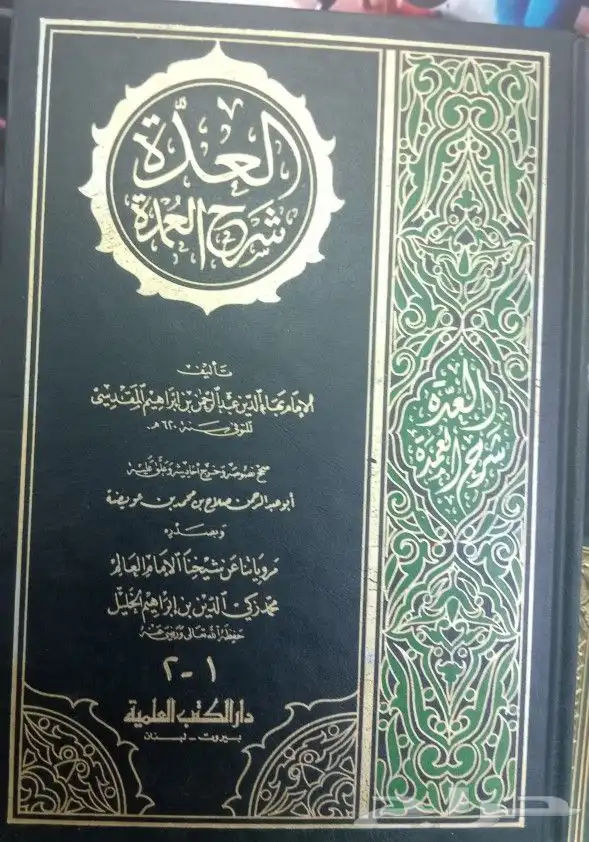 العدّة
شرح العُمدة
تأليف
الإمام بهاء الدين عبد الرحمن بن إبراهيم المقدسي
المتوفى سنة ٦٢٠ هـ
صحّح نصوصه وخرج أحاديثه وعلّق عليه
أبو عبد الرحمن صلاح بن محمد بن عويضة
وبصدره
مروياتنا عن شيخنا الإمام العالم
محمد زكي الدين بن إبراهيم الخليل
حفظه الله تعالى ورضي عنه
١-٢
دار الكتب العلمية
بيروت - لبنان
العدّة
شرح العمدة
حراج